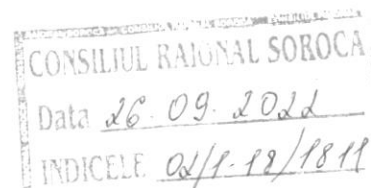 CONSILIUL RAIONAL SOROCA
Data 26.09.2022
INDICELE 02/1-18/1811